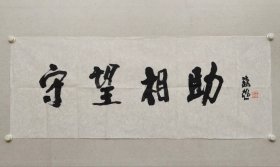 守望相助